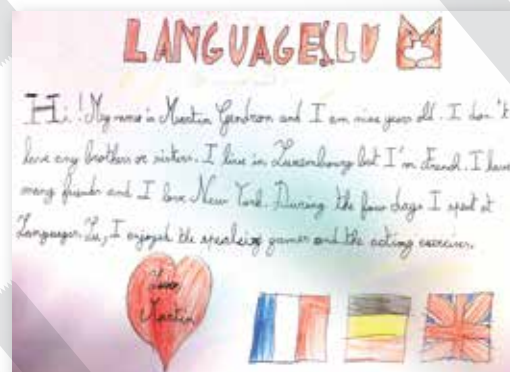 LANGUAGES.LU
Hi! My name is Martin Gendron and I am nine years old. I don't
have any brothers or sisters. I live in Luxembourg but I'm French. I have
many friends and I love New York. During the four days I spent at
Languages.Lu, I enjoyed the speaking games and the acting exercises.
Martin